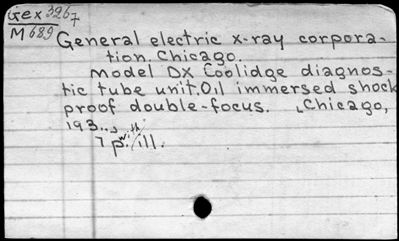 Gex 3267
M689
General electric x-ray corpora-
tion. Chicago.
Model DX Coolidge diagnos-
tic tube unit. Oil immersed shock
proof double-focus. Chicago,
193..,
7 p. with ill.